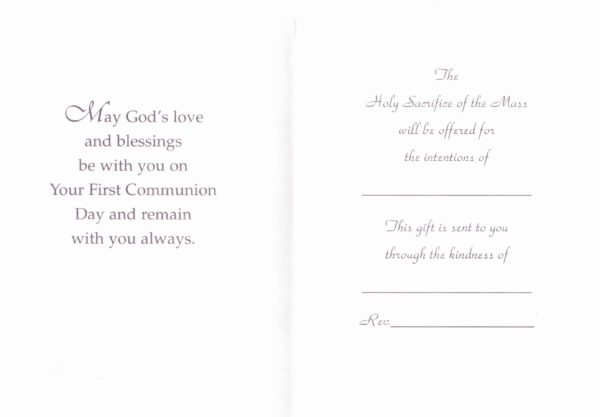 May God's love
and blessings
be with you on
Your First Communion
Day and remain
with you always.
The
Holy Sacrifice of the Mass
will be offered for
the intentions of
This gift is sent to you
through the kindness of
Rev.